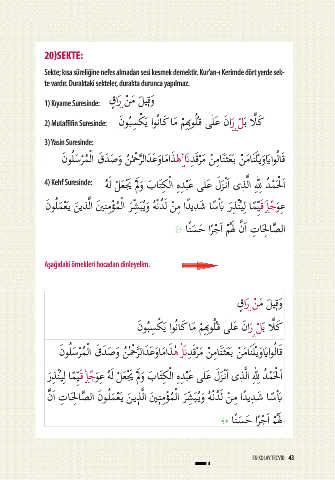 20)SEKTE:
Sekte; kısa süreliğine nefes almadan sesi kesmek demektir. Kur'an-ı Kerimde dört yerde sek-
te vardır. Duraktaki sekteler, durakta durunca yapılmaz.
1) Kıyame Suresinde: وَقِيلَ مَنْ رَاقٍ
2) Mutaffifin Suresinde: كَلَّا بَلْ رَانَ عَلَى قُلُوبِهِمْ مَا كَانُوا يَكْسِبُونَ
3) Yasin Suresinde:
قَالُوا يَا وَيْلَنَا مَنْ بَعَثَنَا مِنْ مَرْقَدِنَا هٰذَا مَا وَعَدَ الرَّحْمٰنُ وَصَدَقَ الْمُرْسَلُونَ
4) Kehf Suresinde: اَلْحَمْدُ لِلّٰهِ الَّذِى اَنْزَلَ عَلَى عَبْدِهِ الْكِتَابَ وَلَمْ يَجْعَلْ لَهُ
عِوَجًا قَيِّمًا لِيُنْذِرَ بَأْسًا شَدِيدًا مِنْ لَدُنْهُ وَيُبَشِّرَ الْمُؤْمِنِينَ الَّذِينَ يَعْمَلُونَ
الصَّالِحَاتِ اَنَّ لَهُمْ اَجْرًا حَسَنًا
Aşağıdaki örnekleri hocadan dinleyelim.
وَقِيلَ مَنْ رَاقٍ
كَلَّا بَلْ رَانَ عَلَى قُلُوبِهِمْ مَا كَانُوا يَكْسِبُونَ
قَالُوا يَا وَيْلَنَا مَنْ بَعَثَنَا مِنْ مَرْقَدِنَا هٰذَا مَا وَعَدَ الرَّحْمٰنُ وَصَدَقَ الْمُرْسَلُونَ
اَلْحَمْدُ لِلّٰهِ الَّذِى اَنْزَلَ عَلَى عَبْدِهِ الْكِتَابَ وَلَمْ يَجْعَلْ لَهُ عِوَجًا قَيِّمًا لِيُنْذِرَ
بَأْسًا شَدِيدًا مِنْ لَدُنْهُ وَيُبَشِّرَ الْمُؤْمِنِينَ الَّذِينَ يَعْمَلُونَ الصَّالِحَاتِ اَنَّ
لَهُمْ اَجْرًا حَسَنًا
43